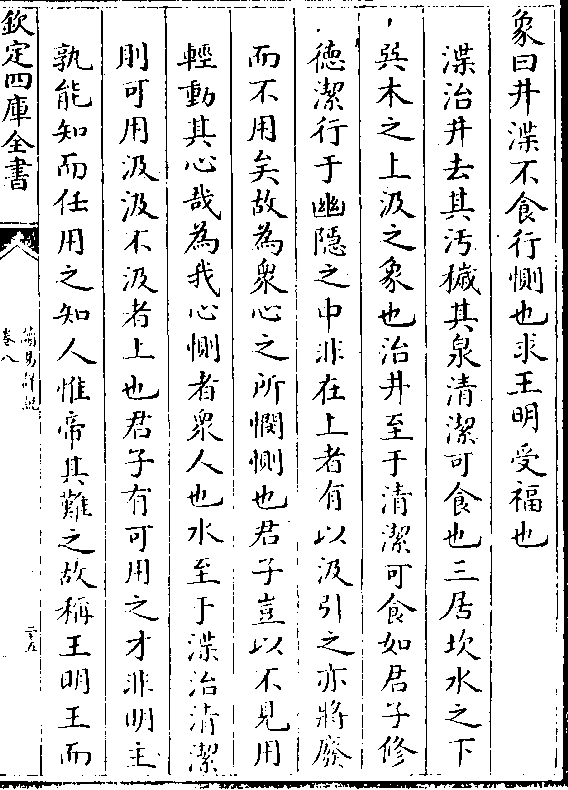 象曰井渫不食行惻也求王明受福也
渫治井去其汚穢其泉清潔可食也三居坎水之下
巽木之上汲之象也治井至于清潔可食如君子修
徳潔行于幽隱之中非在上者有以汲引之亦將廢
而不用矣故為衆心之所憫惻也君子豈以不見用
輕動其心哉為我心惻者衆人也水至于渫治清潔
則可用汲汲不汲者上也君子有可用之才非明主
孰能知而任用之知人惟帝其難之故稱王明王而
欽定四庫全書
周易詳說
卷八
二十五